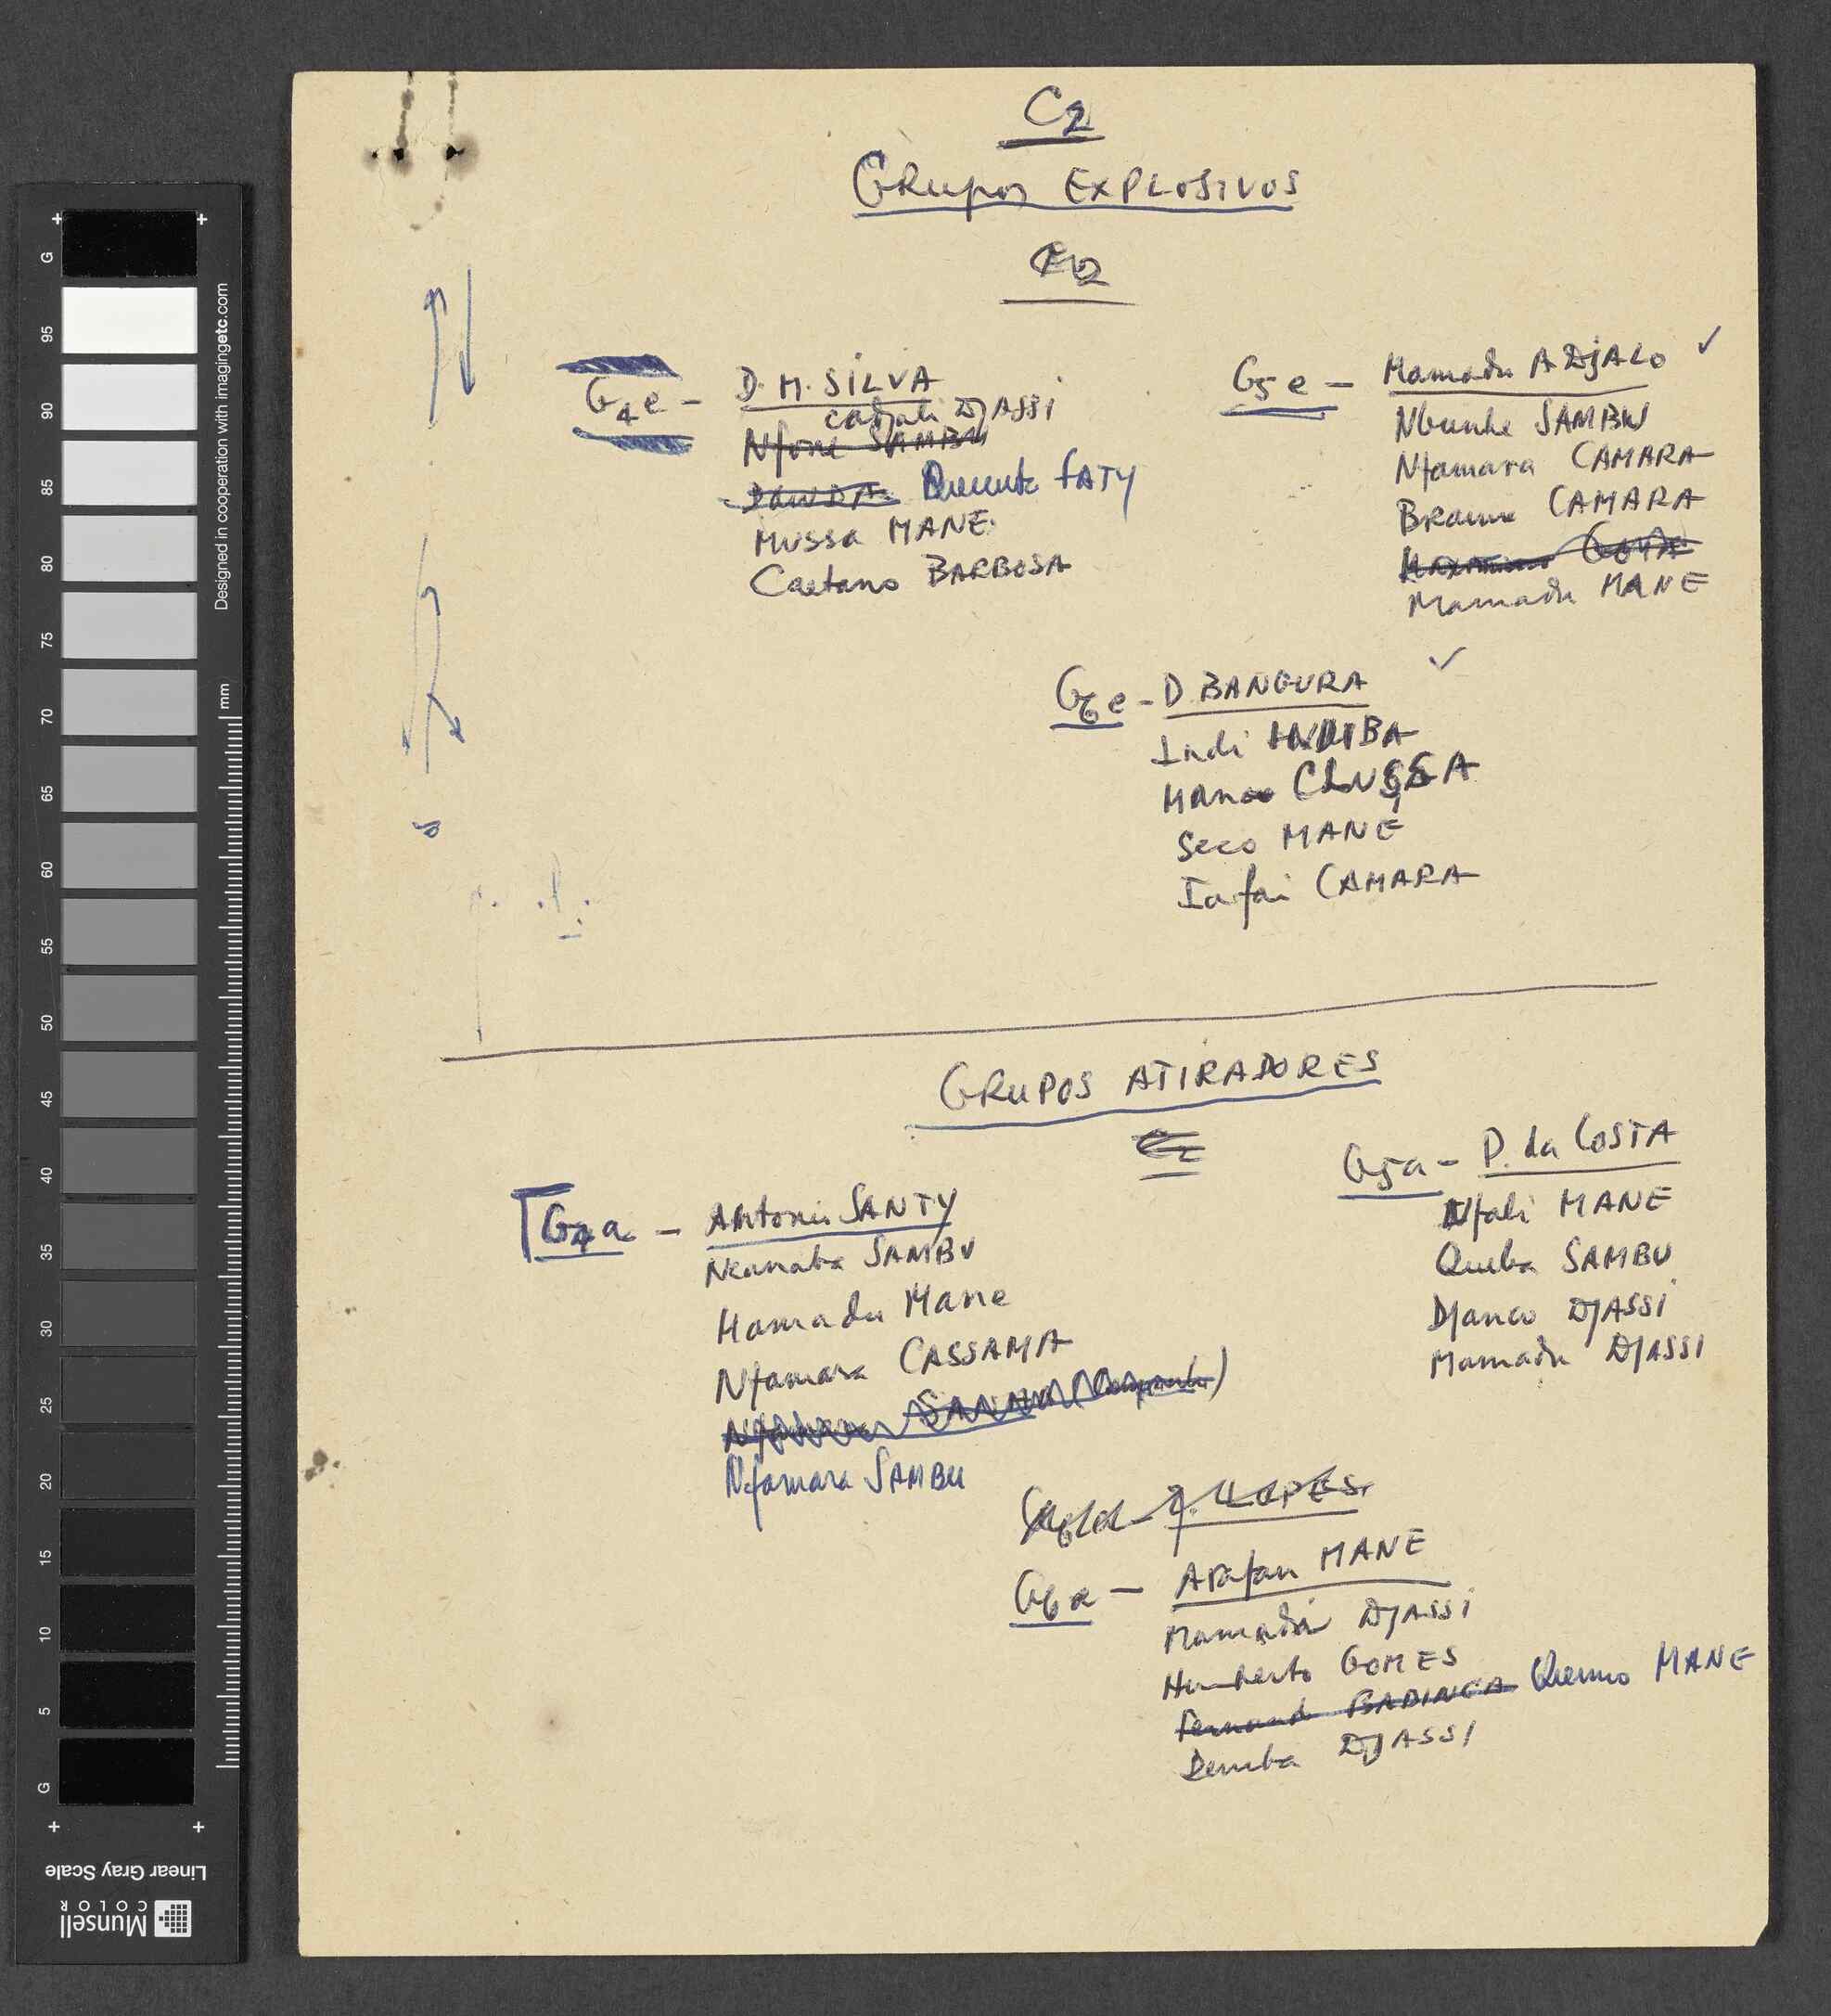 C2
GRupos EXPLOSIVOS
C2
G4e - D. M. SILVA
Cadjali DJASSI
Nfone SAMBU
DAUDA Quecuta FATY
Mussa MANE
Caetano BARBOSA
G5e - Mamadu A DjALO ✓
SAMBU
Nfamara CAMARA
Braima CAMARA
Mamadu MANE
G6e - D. BANGURA ✓
Indi INDIBA
Seco MANE
Iafai CAMARA
GRUPOS ATIRADORES
C2
G4a - Antonio SANTY
SAMBU
Mamadu Mane
Nfamara CASSAMA
Nfamara SAMBU
G5a - P. da COSTA
Nfali MANE
Queba SAMBU
Djanco DJASSI
Mamadu DJASSI
LOPES
G6a - Arafan MANE
Mamadu DJASSI
Humberto GOMES
Fernando BADINCA Quemo MANE
Demba DJASSI
G
95
90
85
80
75
70
65
60
55
50
45
40
35
30
25
20
15
10
5
G
Designed in cooperation with imagingetc.com
mm
Linear Gray Scale
Munsell
COLOR